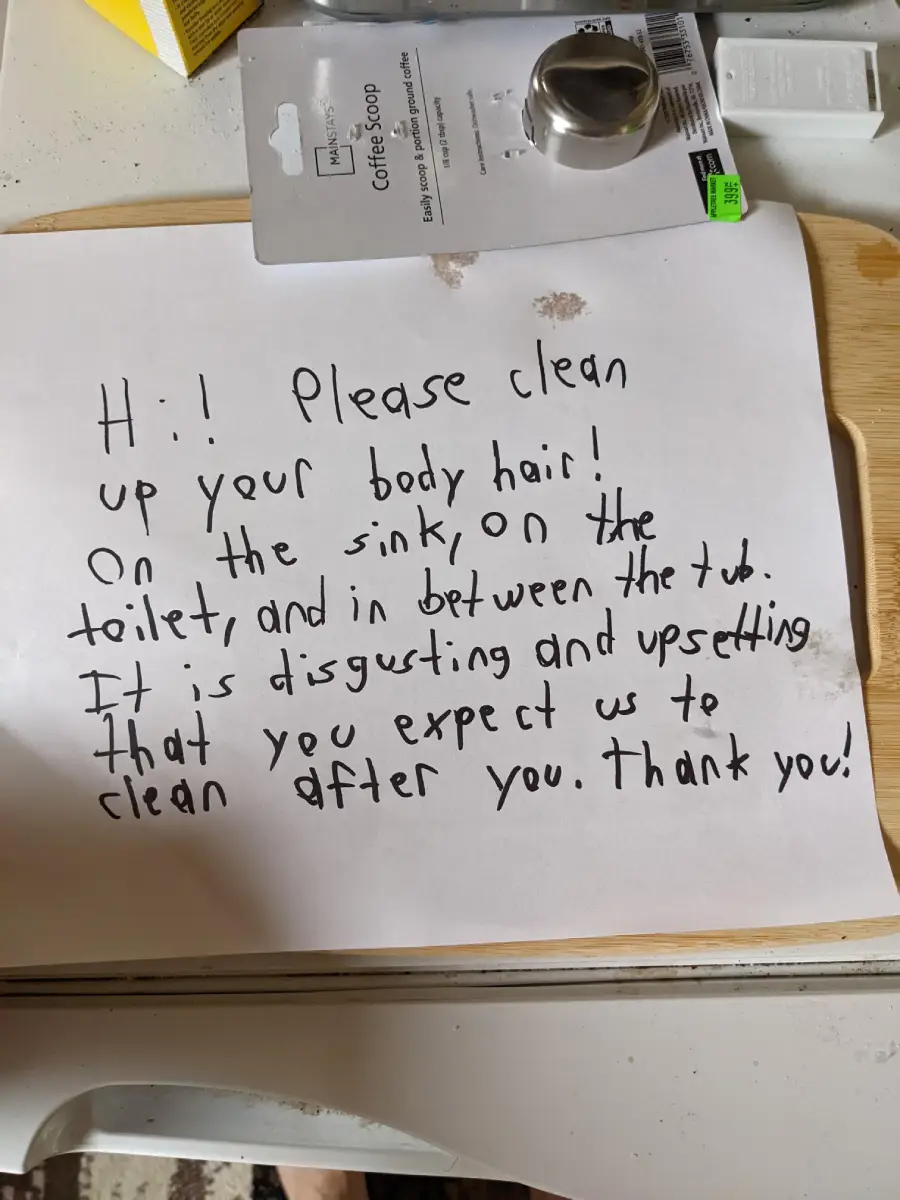 MAINSTAYS
Coffee Scoop
Easily scoop & portion ground coffee
1/8 cup (2 tbsp) capacity
Care instructions: Dishwasher safe.
399
Hi! Please clean
up your body hair!
On the sink, on the
toilet, and in between the tub.
It is disgusting and upsetting
that you expect us to
clean after you. Thank you!